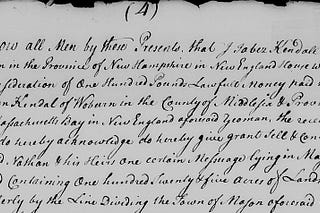 (4)
ow all Men by these Presents, that I Jabez Kendall
in the Province of New Hampshire in New England House w
sideration of One Hundred Pounds Lawfull Money paid
n Kendal of Woburn in the County of Middlesex & Provin
assachusetts Bay in New England aforesaid Yeoman, the recei
do hereby acknowledge do hereby give grant Sell & Con
d Nathan & his Heirs One certain Messuage lying in Ma
d Containing One hundred Twenty & five acres of Land
erly by the Line dividing the Town of Mason aforesaid